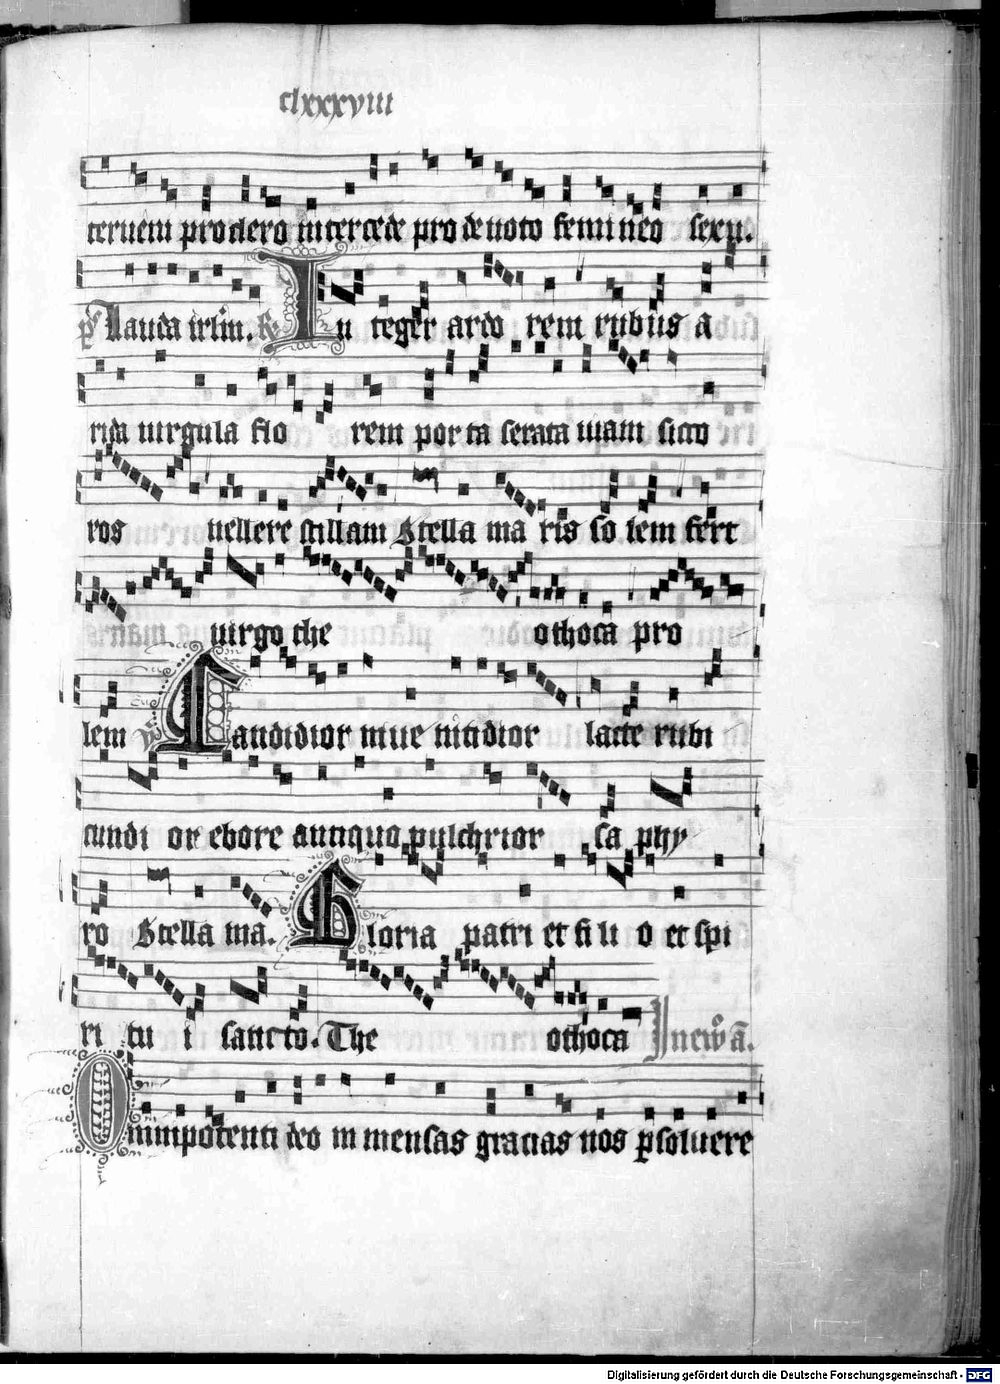 clxxxviii
terueni pro clero intercede pro deuoto femineo sexu.
ps Lauda irlm. R Iu teger ardo rem rubus a
rida uirgula flo rem porta serata uiam sicco
ros uellere stillam Stella ma ris so lem fert
uirgo the othoca pro
lem v Candidior niue nitidior lacte rubi
cundi or ebore antiquo pulchrior sa phy
ro Stella ma. Gloria patri et fi li o et spi
ri tu i sancto. The othoca In euu a.
Omnipotenti deo in mensas gracias nos psoluere
Digitalisierung gefördert durch die Deutsche Forschungsgemeinschaft - DFG